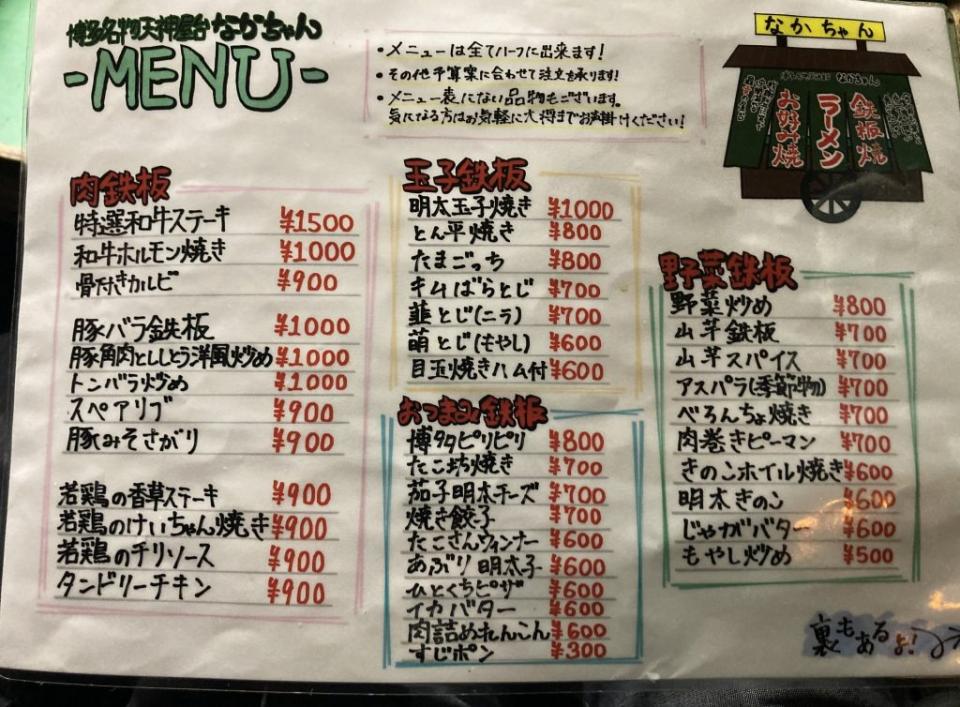 博多名物天神屋台 なかちゃん
-MENU-
・メニューは全てハーフに出来ます!
・その他予算案に合わせて注文を承ります!
・メニュー表にない品物もございます。
気になる方はお気軽に大将までお声掛けください!
なかちゃん
なかちゃん
鉄板焼
ラーメン
お好み焼
肉鉄板
特選和牛ステーキ ¥1500
和牛ホルモン焼き ¥1000
骨付きカルビ ¥900
豚バラ鉄板 ¥1000
豚角肉とししとう洋風炒め ¥1000
トンバラ炒め ¥1000
スペアリブ ¥900
豚みそさがり ¥900
若鶏の香草ステーキ ¥900
若鶏のけいちゃん焼き ¥900
若鶏のチリソース ¥900
タンドリーチキン ¥900
玉子鉄板
明太玉子焼き ¥1000
とん平焼き ¥800
たまごっち ¥800
キムばらとじ ¥700
韮とじ(ニラ) ¥700
萌とじ(もやし) ¥600
目玉焼きハム付 ¥600
おつまみ鉄板
博多ピリピリ ¥800
たこ坊焼き ¥700
茄子明太チーズ ¥700
焼き餃子 ¥700
たこさんウィンナー ¥600
あぶり明太子 ¥600
ひとくちピザ ¥600
イカバター ¥600
肉詰めれんこん ¥600
すじポン ¥300
野菜鉄板
野菜炒め ¥800
山芋鉄板 ¥700
山芋スパイス ¥700
アスパラ(季節物) ¥700
べろんちょ焼き ¥700
肉巻きピーマン ¥700
きのこホイル焼き ¥600
明太きのこ ¥600
じゃがバター ¥600
もやし炒め ¥500
裏もあるよ!